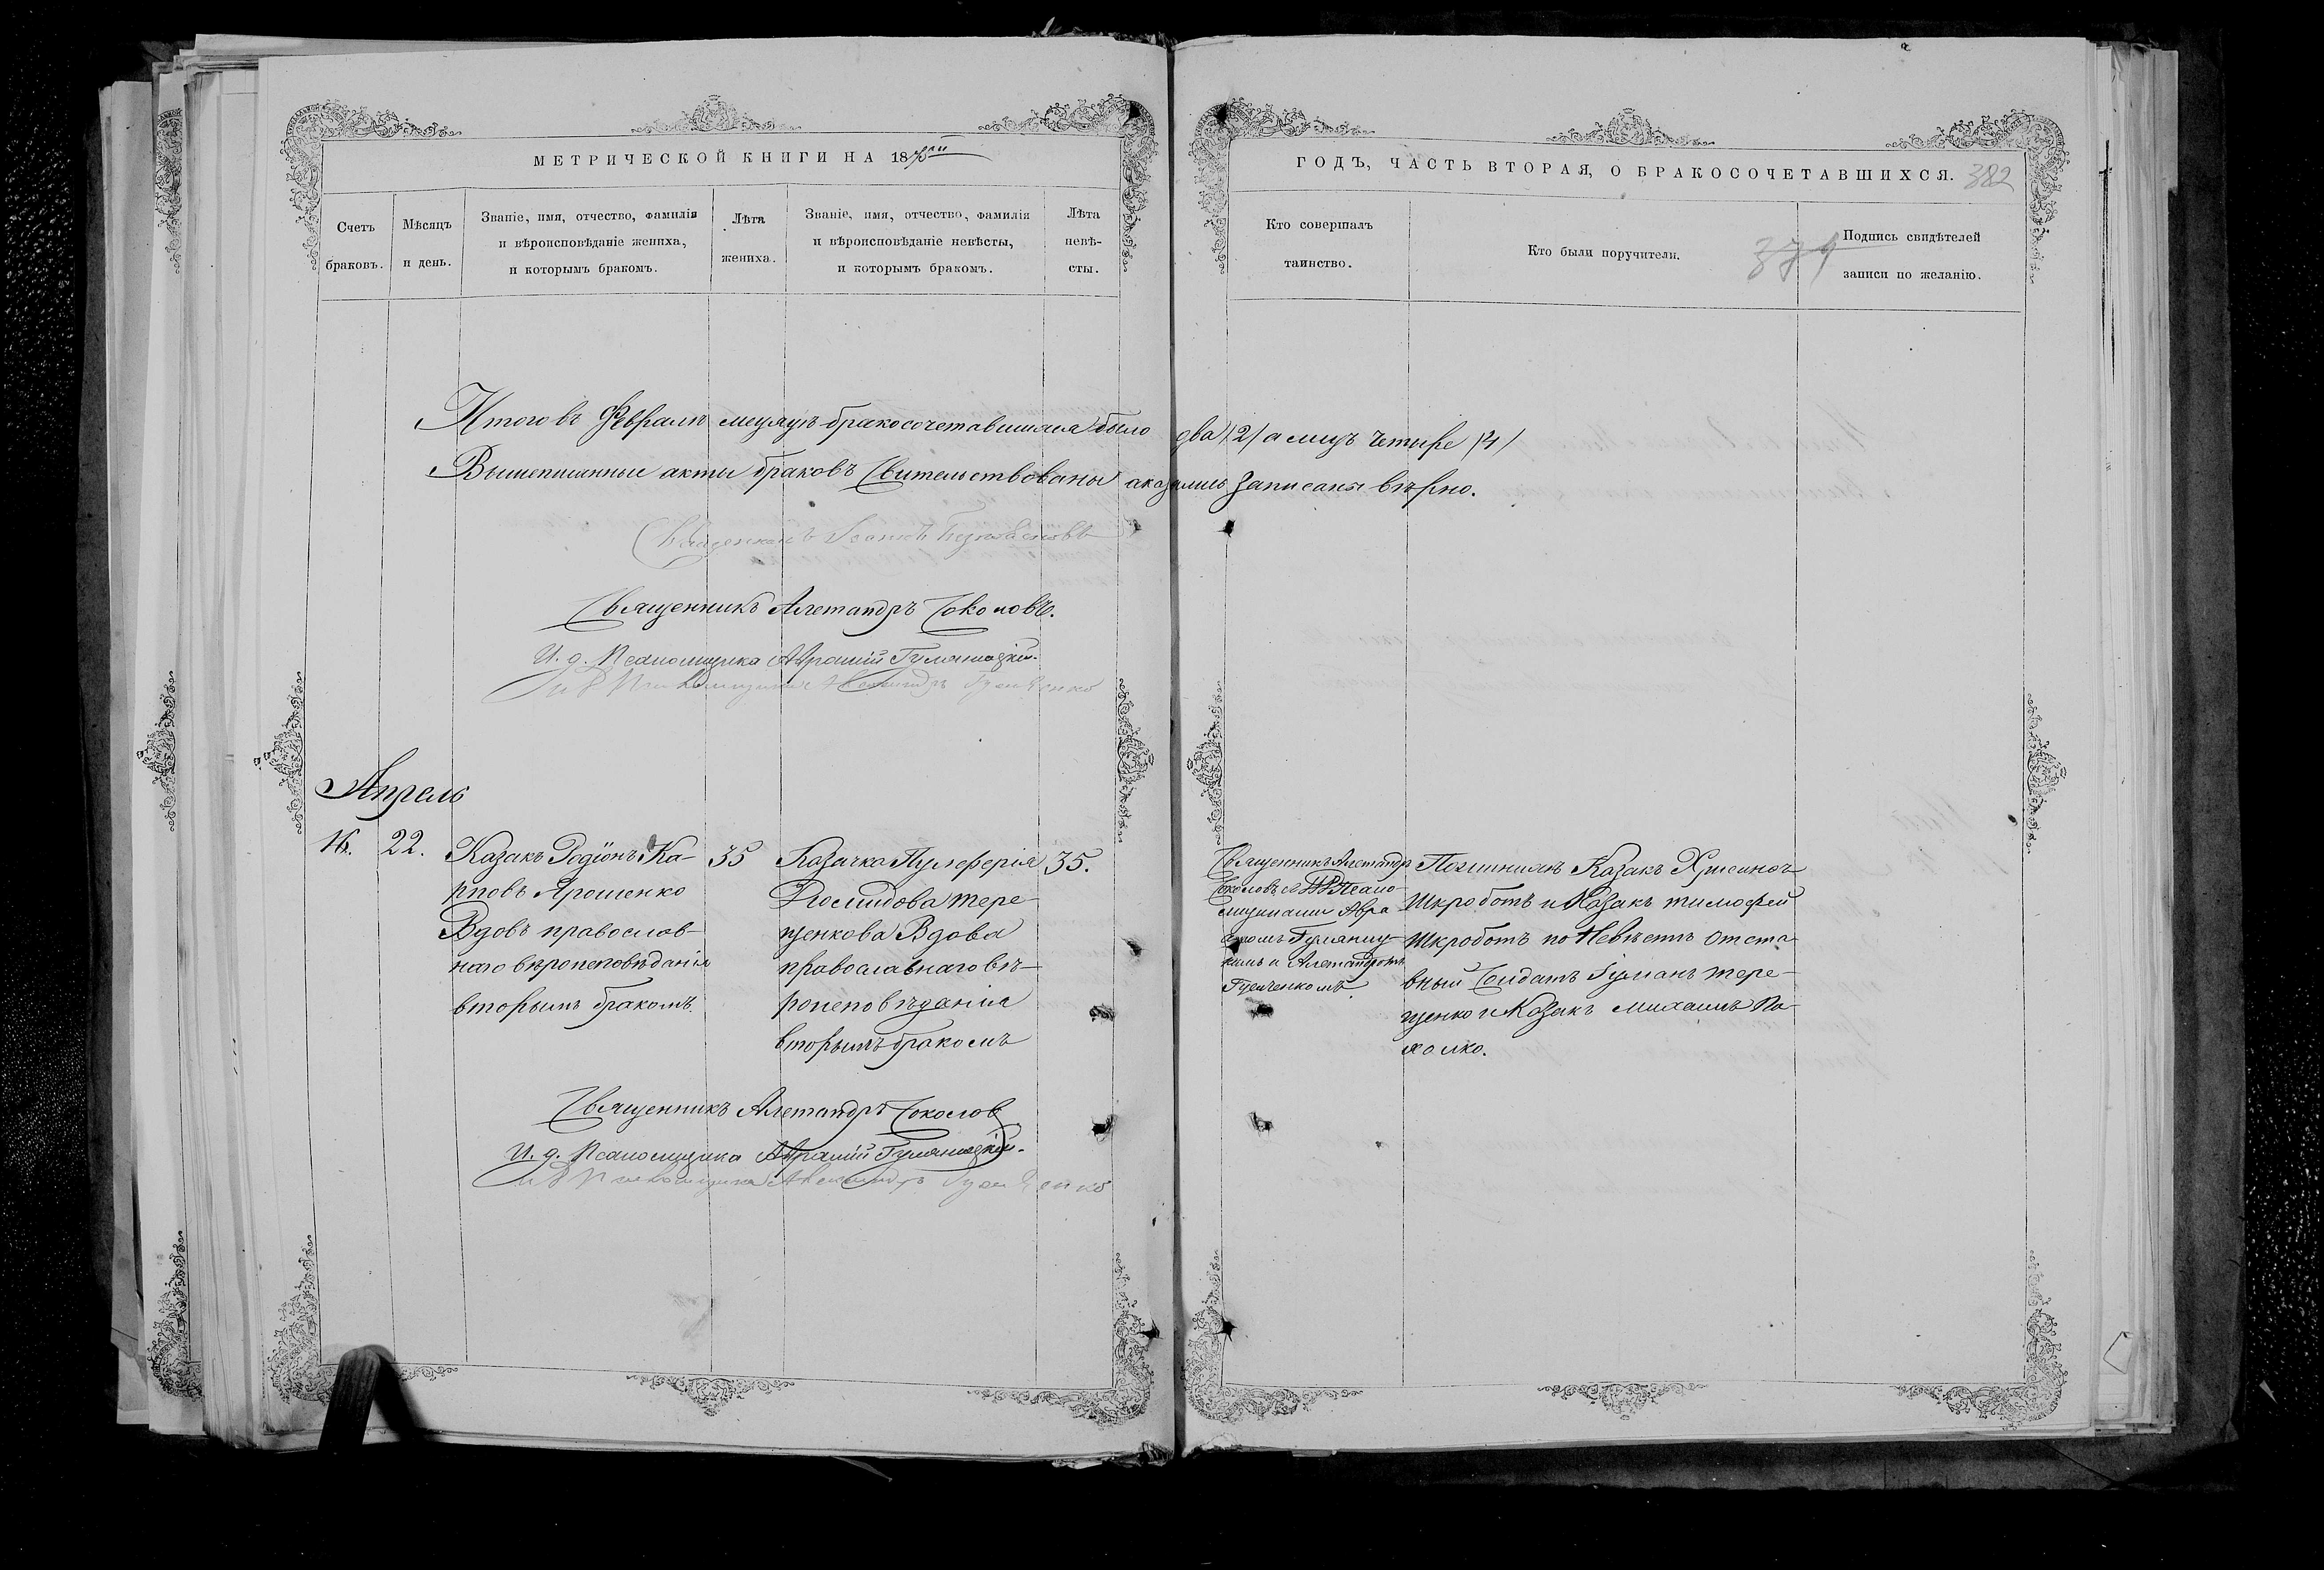 МЕТРИЧЕСКОЙ КНИГИ НА 18
ГОДЪ, ЧАСТЬ ВТОРАЯ, О БРАКОСОЧЕТАВШИХСЯ. 382
Счетъ браковъ.
Мѣсяцъ и день.
Званіе, имя, отчество, фамилія
и вѣроисповѣданіе жениха,
и которымъ бракомъ.
Лѣта
жениха.
Званіе, имя, отчество, фамилія
и вѣроисповѣданіе невѣсты,
и которымъ бракомъ.
Лѣта
невѣ-
сты.
Кто совершалъ
таинство.
Кто были поручители.
Подпись свидѣтелей
записи по желанію.
Итого въ Февралѣ месяцѣ бракосочетавшихся было два /2/ а лицъ четыре /4/
Вышеписанные акты браковъ Свительствованы аказались записаны вѣрно.
Священникъ Александръ Соколовъ.
И. д. Псаломщика
Апрель
22.
Казакъ Родіонъ Ка-
рповъ Ярошенко
Вдовъ православ-
наго вѣроисповѣданія
вторымъ бракомъ.
35
Козачка Пулхерія
Тере-
щенкова Вдова
православнаго вѣ-
роисповѣданія
вторымъ бракомъ
35.
Священникъ Александръ
Соколовъ
Псало-
мщиками Авра
и Александромъ
Гуленченкомъ
По женихѣ Казакъ
Шкроботъ и Казакъ Тимофей
Шкроботъ по Невѣстѣ Отста-
вный Солдатъ Тере-
щенко и Казакъ Михаилъ Па-
холко.
Священникъ Александръ Соколов
И. д. Псаломщика